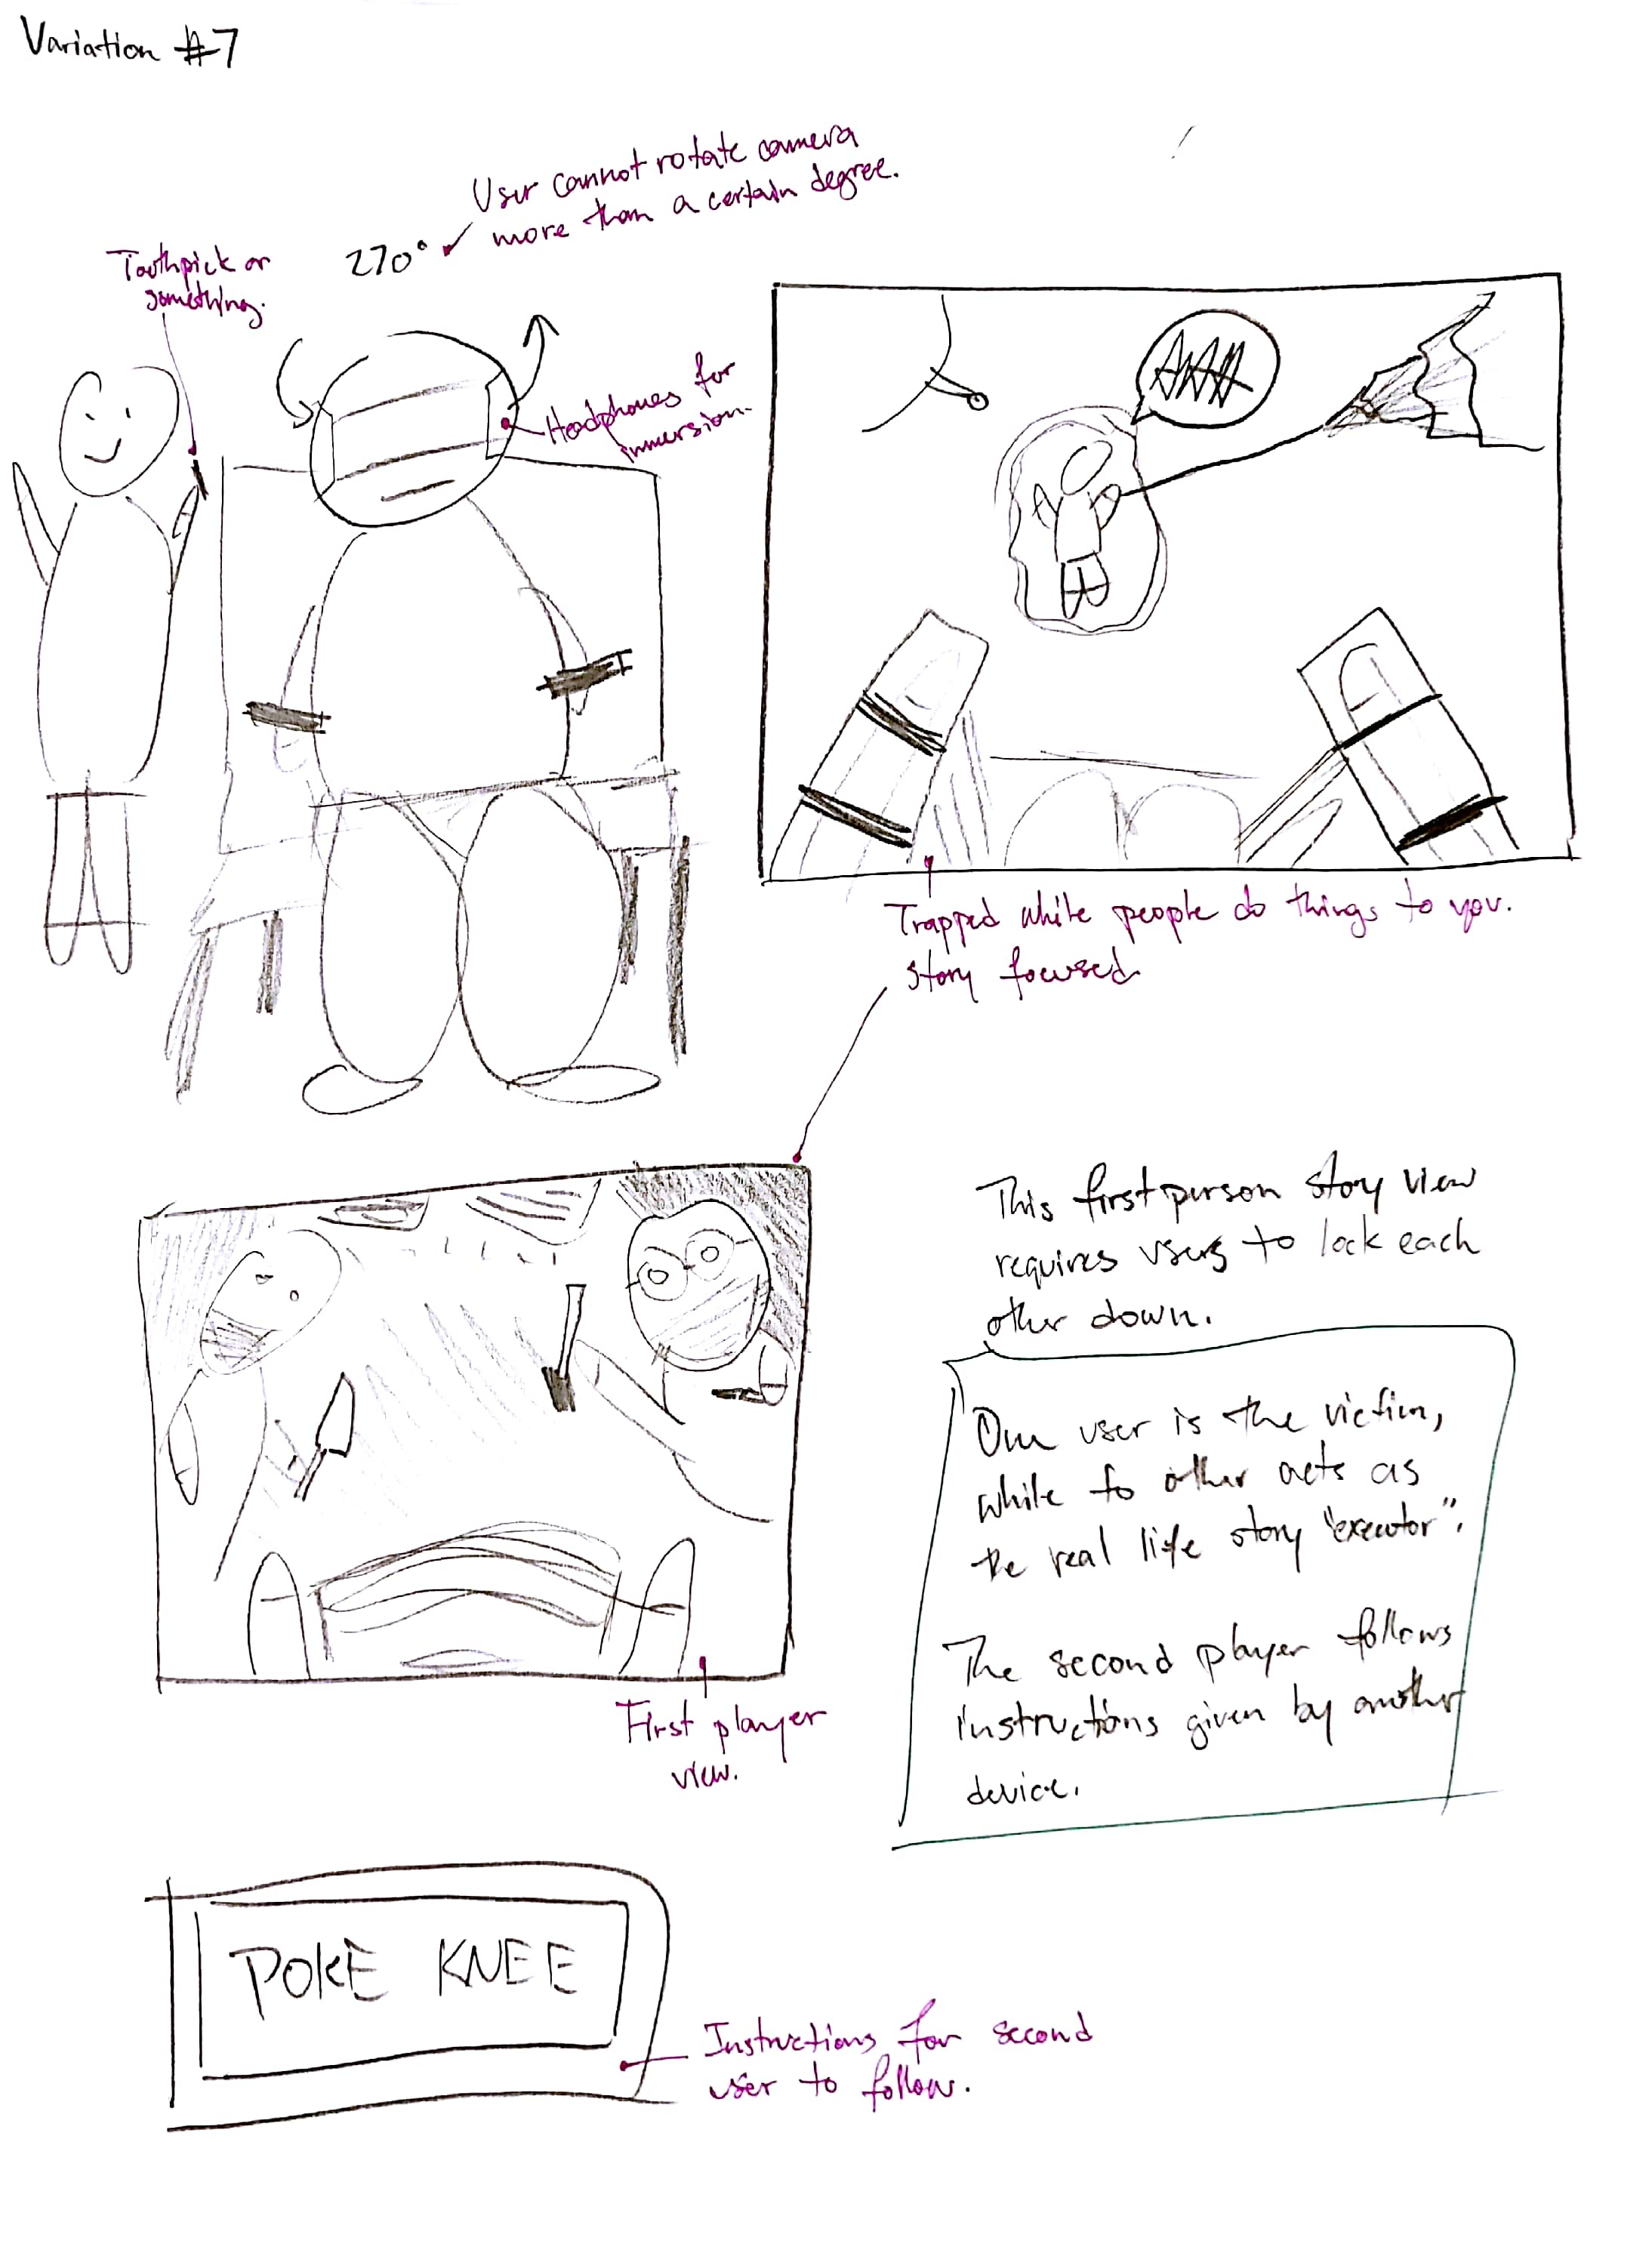 Variation #7
User cannot rotate camera
more than a certain degree.
270°
Toothpick or
something.
Headphones for
immersion.
AAAH
Trapped while people do things to you.
Story focused
This first person story view
requires users to lock each
other down.
One user is the victim,
while to other acts as
the real life story "executor".
The second player follows
instructions given by another
device.
First player
view.
POKE KNEE
Instructions for second
user to follow.